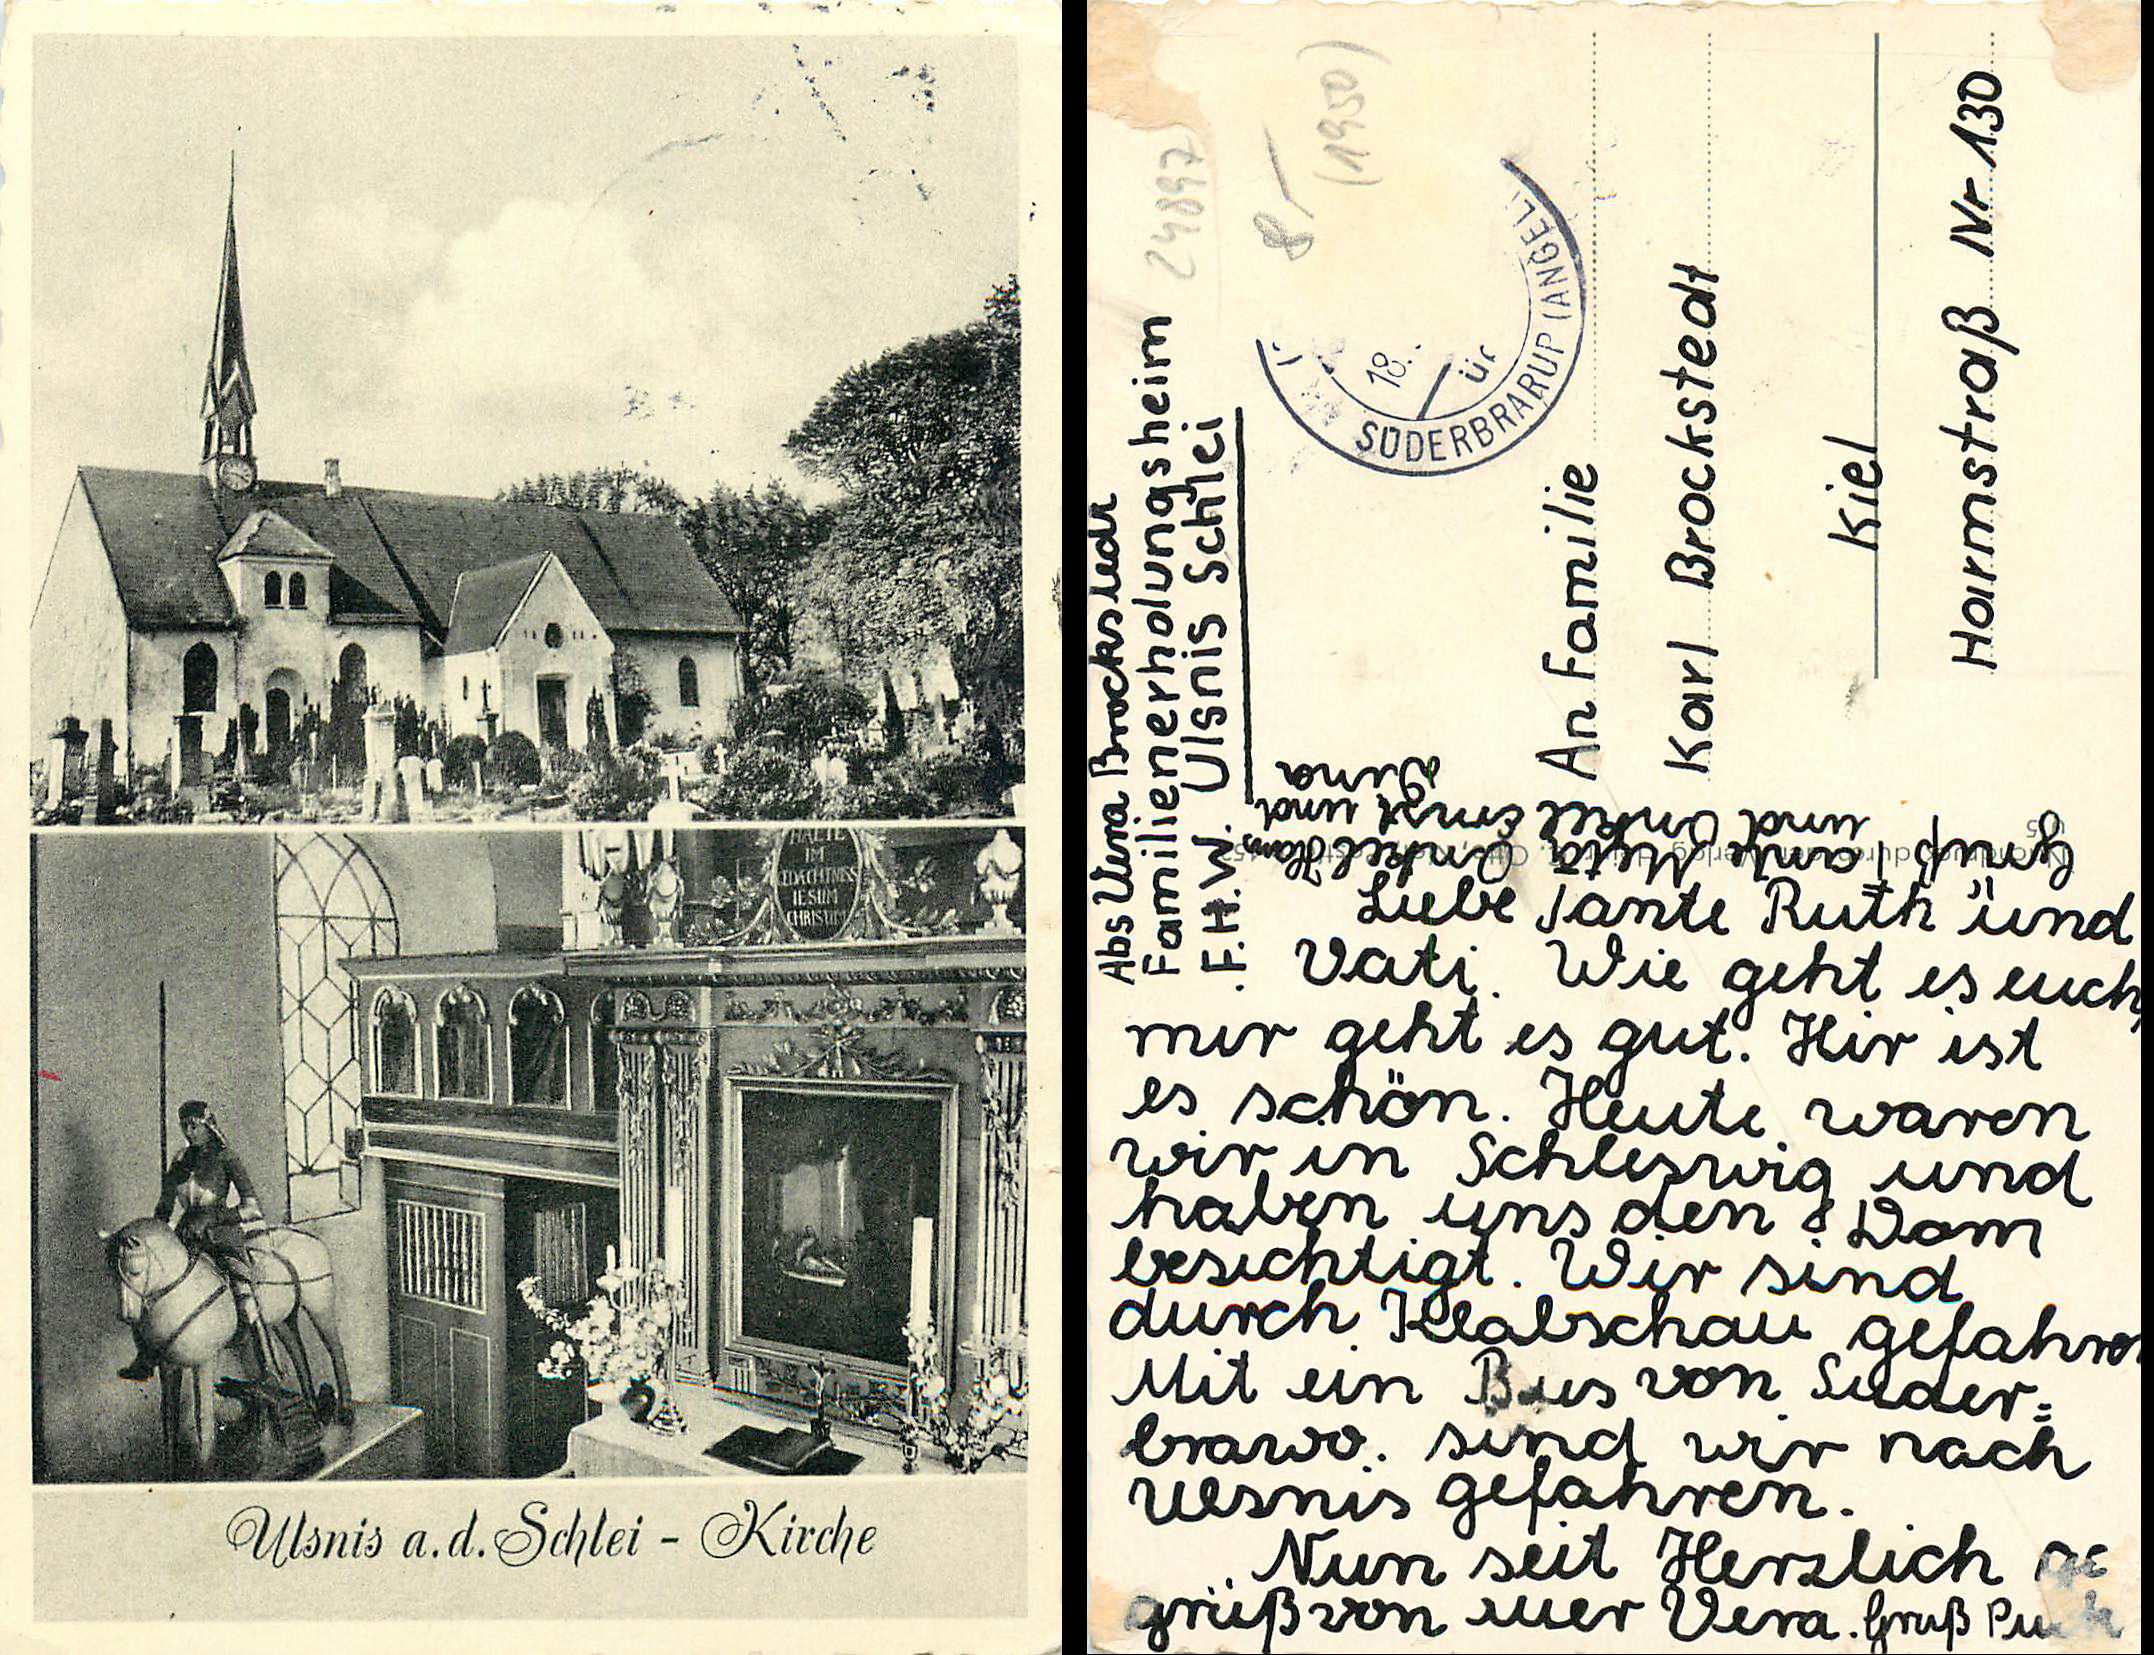 HALTE
IM
GEDÄCHTNISS
IESUM
CHRISTUM
Ulsnis a.d. Schlei - Kirche
24897
8,-
(1950)
SÜDERBRARUP (ANGELN
18.
ür
Abs Vera Brockstedt
Familienerholungsheim
F.H.W. Ulsnis Schlei
An Familie
Karl Brockstedt
Kiel
Harmstraß Nr 130
Liebe Tante Ruth und
Vati. Wie geht es euch,
mir geht es gut. Hir ist
es schön. Heute waren
wir in Schleswig und
haben uns den Dom
besichtigt. Wir sind
durch Klabschau gefahren
Mit ein Bus von Süder=
brawo. sind wir nach
Ulsnis gefahren.
Nun seit Herzlich ge
grüßt von euer Vera. Gruß
Gruß Tante Meta Onkel Hans
und Onkel Ernst und